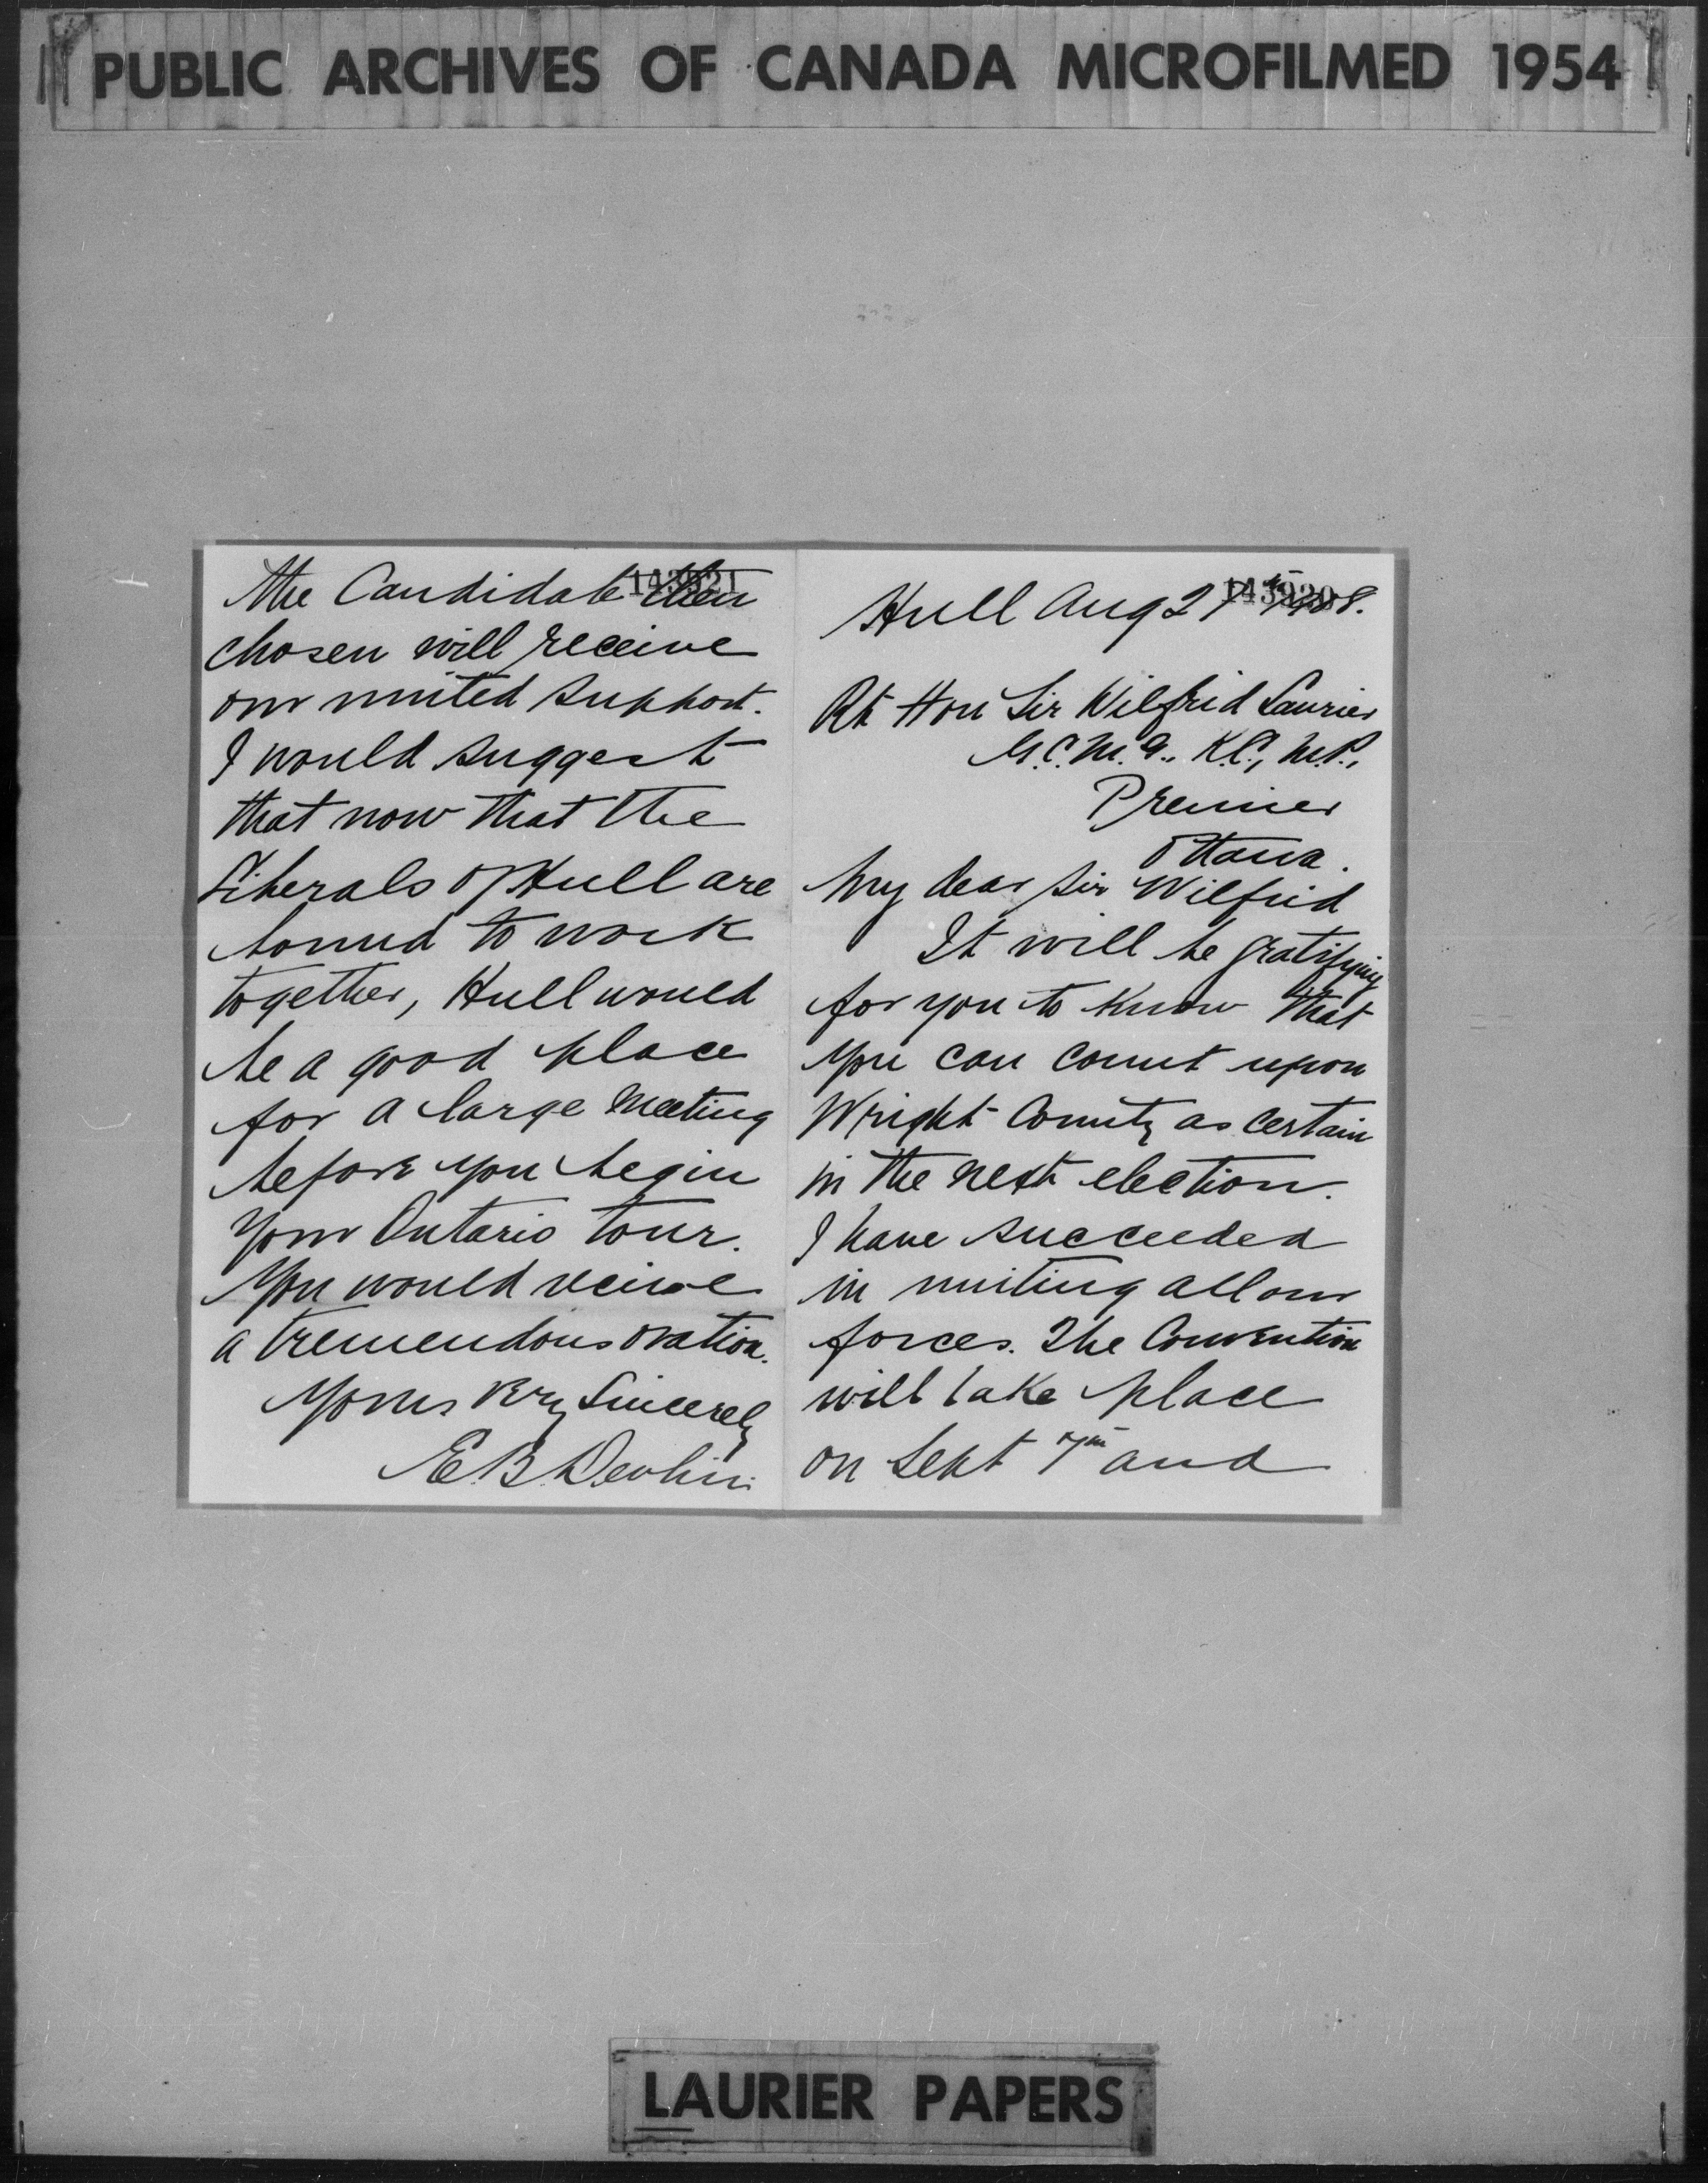 PUBLIC ARCHIVES OF CANADA MICROFILMED 1954
Hull Aug 2
Rt Hon Sir Wilfrid Laurier
G.C.M.G., K.C., M.P.,
Premier
Ottawa.
My dear Sir Wilfrid
It will be gratifying
for you to know that
you can count upon
Wright County as certain
in the next election.
I have succeeded
in uniting all our
forces. The Convention
will take place
on Sept 7th and
143921
the Candidate then
chosen will receive
our united support.
I would suggest
that now that the
Liberals of Hull are
bound to work
together, Hull would
be a good place
for a large meeting
before you begin
your Ontario tour.
You would receive
a tremendous ovation.
Yours very Sincerely
E.B. Devlin
LAURIER PAPERS